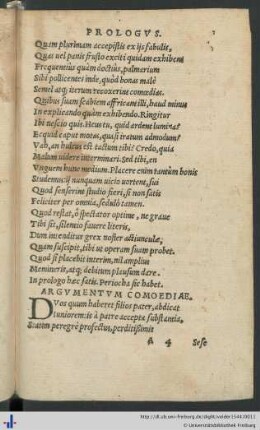 PROLOGVS.
Quam plurimam accepistis ex ijs fabulis,
Quas uel panis frusto exciti quidam exhibent
Frequentius quàm doctius, palmarium
Sibi pollicentes inde, quòd bonas malè
Semel atq; iterum uexauerint comœdias.
Quibus suam scabiem affricant illi, haud minus
In explicando quàm exhibendo. Ringitur
Ibi nescio quis. Heus tu, quid ardent lumina?
Ecquid caput motas, quasi iratum admodum?
Vah, an hulcus est tactum tibi? Credo, quia
Malum uidere interminari. Sed tibi, en
Vnguem hunc medium. Placere enim tantùm bonis
Studemus: ijs nunquam uicio uortent, sui
Quod senserint studio fieri, si non satis
Feliciter per omnia, sedulò tamen.
Quod restat, ô spectator optime, ne graue
Tibi sit, silentio fauere literis,
Dum intenditur grex noster actiunculæ,
Quam suscepit, tibi ut operam suam probet.
Quod si placebit interim, nil amplius
Memineris, atq; debitum plausum dare.
In prologo hæc fatis. Periocha sic habet.
ARGVMENTVM COMOEDIAE.
DVos quum haberet filios pater, abdicat
Iuniorem: is à patre accepta substantia,
Statim peregrè profectus, perditissimis
A 4 Sese
http://dl.ub.uni-freiburg.de/diglit/
© Universitätsbibliothek Freiburg